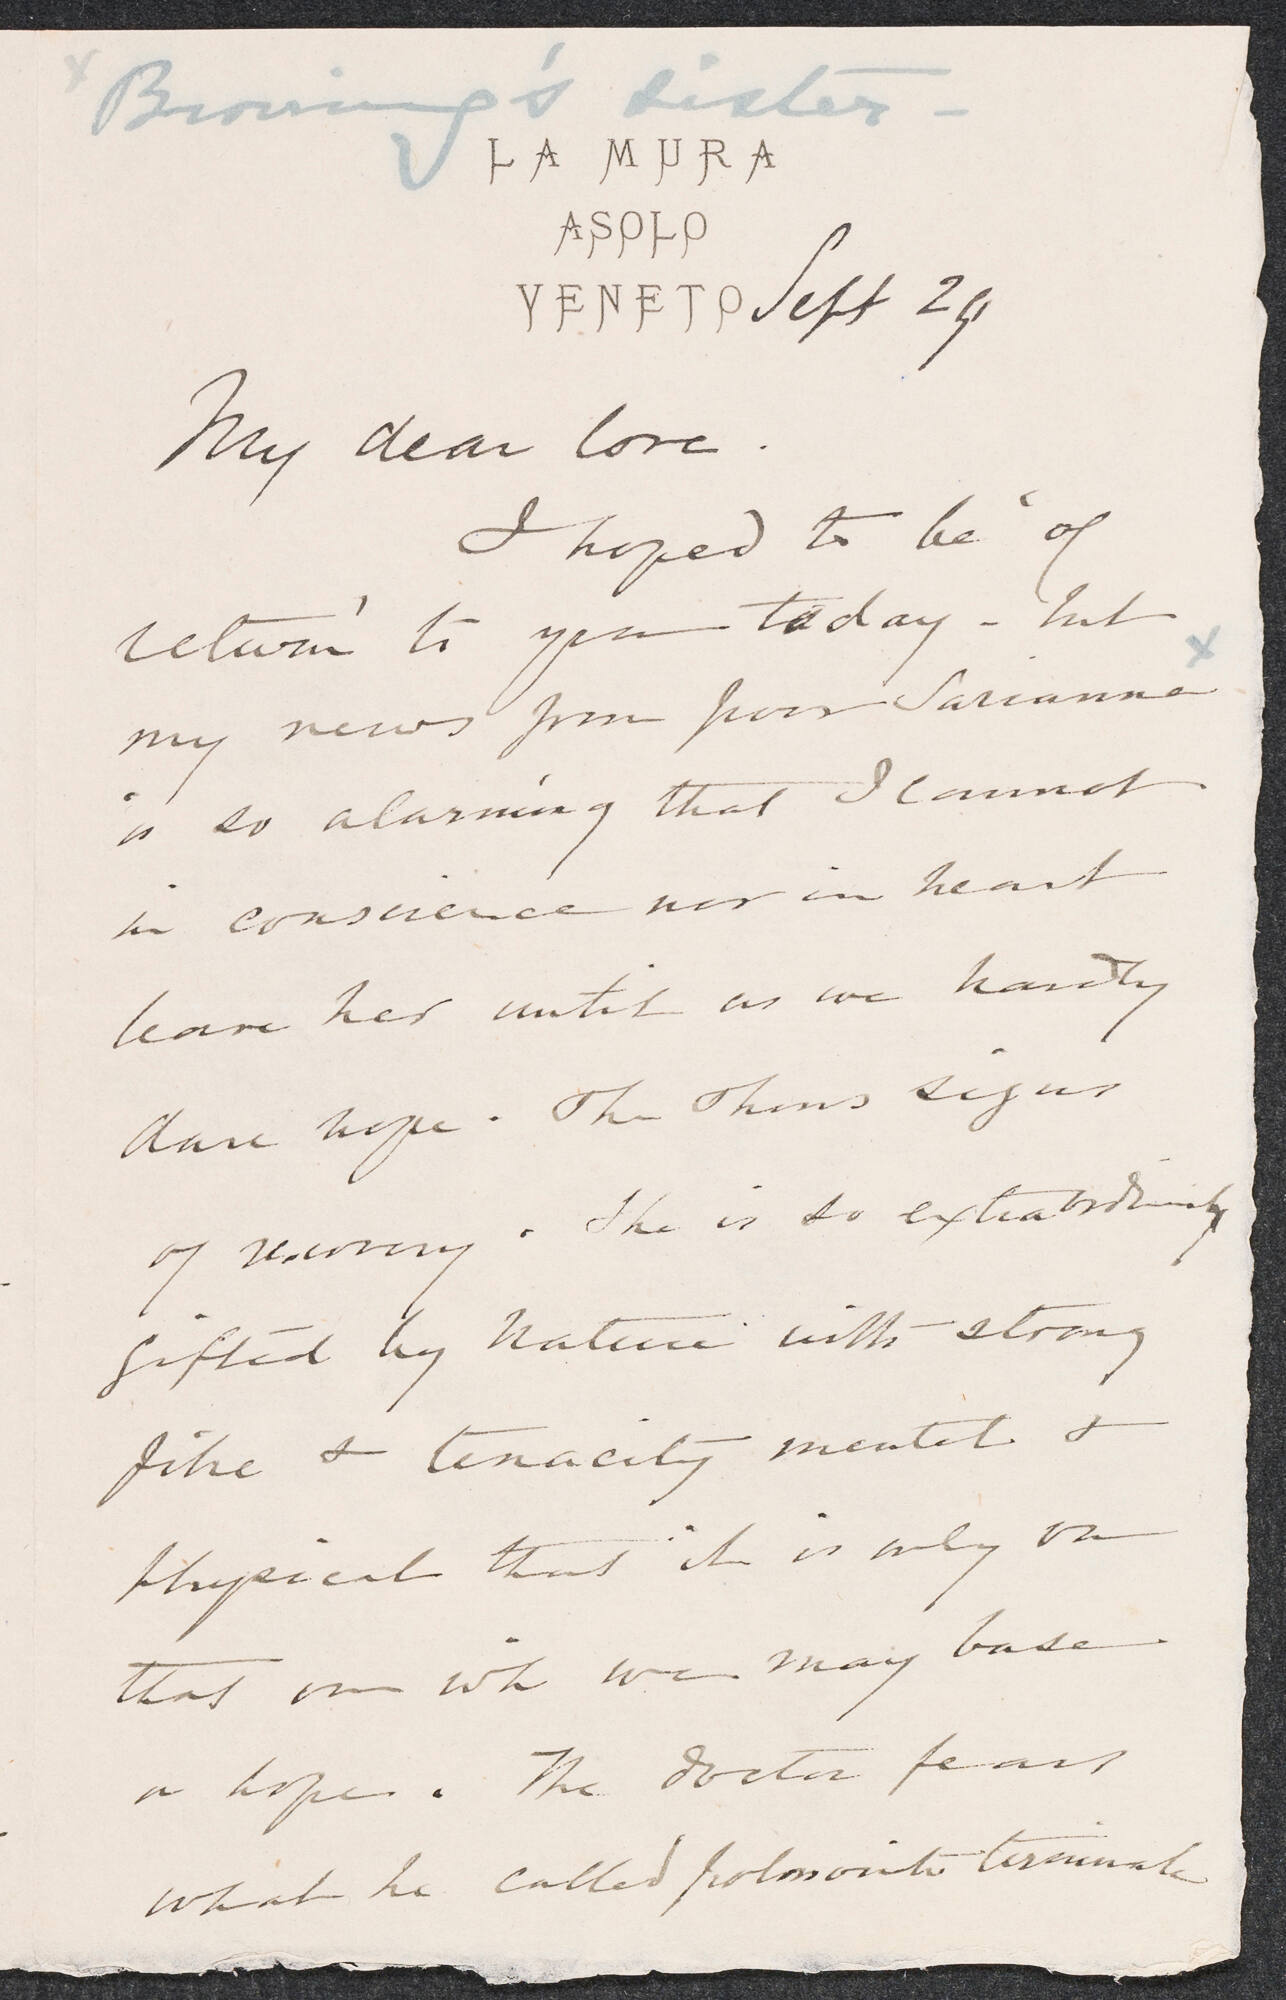 x Browning's sister -
LA MURA
ASOLO
VENETO Sept 29
My dear love.
I hoped to be "of
return" to you today - but x
my news from poor Sarianna
is so alarming that I cannot
in conscience nor in heart
leave her until as we hardly
dare hope. She shows signs
of recovery. She is so extraordinarily
gifted by Nature with strong
fibre & tenacity mental &
physical that it is only on
that on wh we may base
a hope. The doctor fears
what he called polmonite terminale